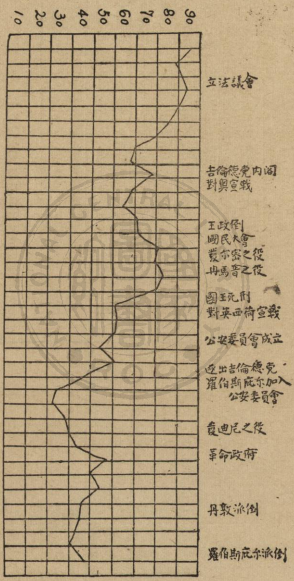 10 20 30 40 50 60 70 80 90
立法議會
吉倫德党内阁
對奥宣戰
王政倒
國民大會
瓦尔密之役
冉馬普之役
國王死刑
對英西荷宣戰
公安委員會成立
逐出吉倫德党
羅伯斯庇尔加入
公安委員會
之役
革命政府
丹敦派倒
羅伯斯庇尔派倒